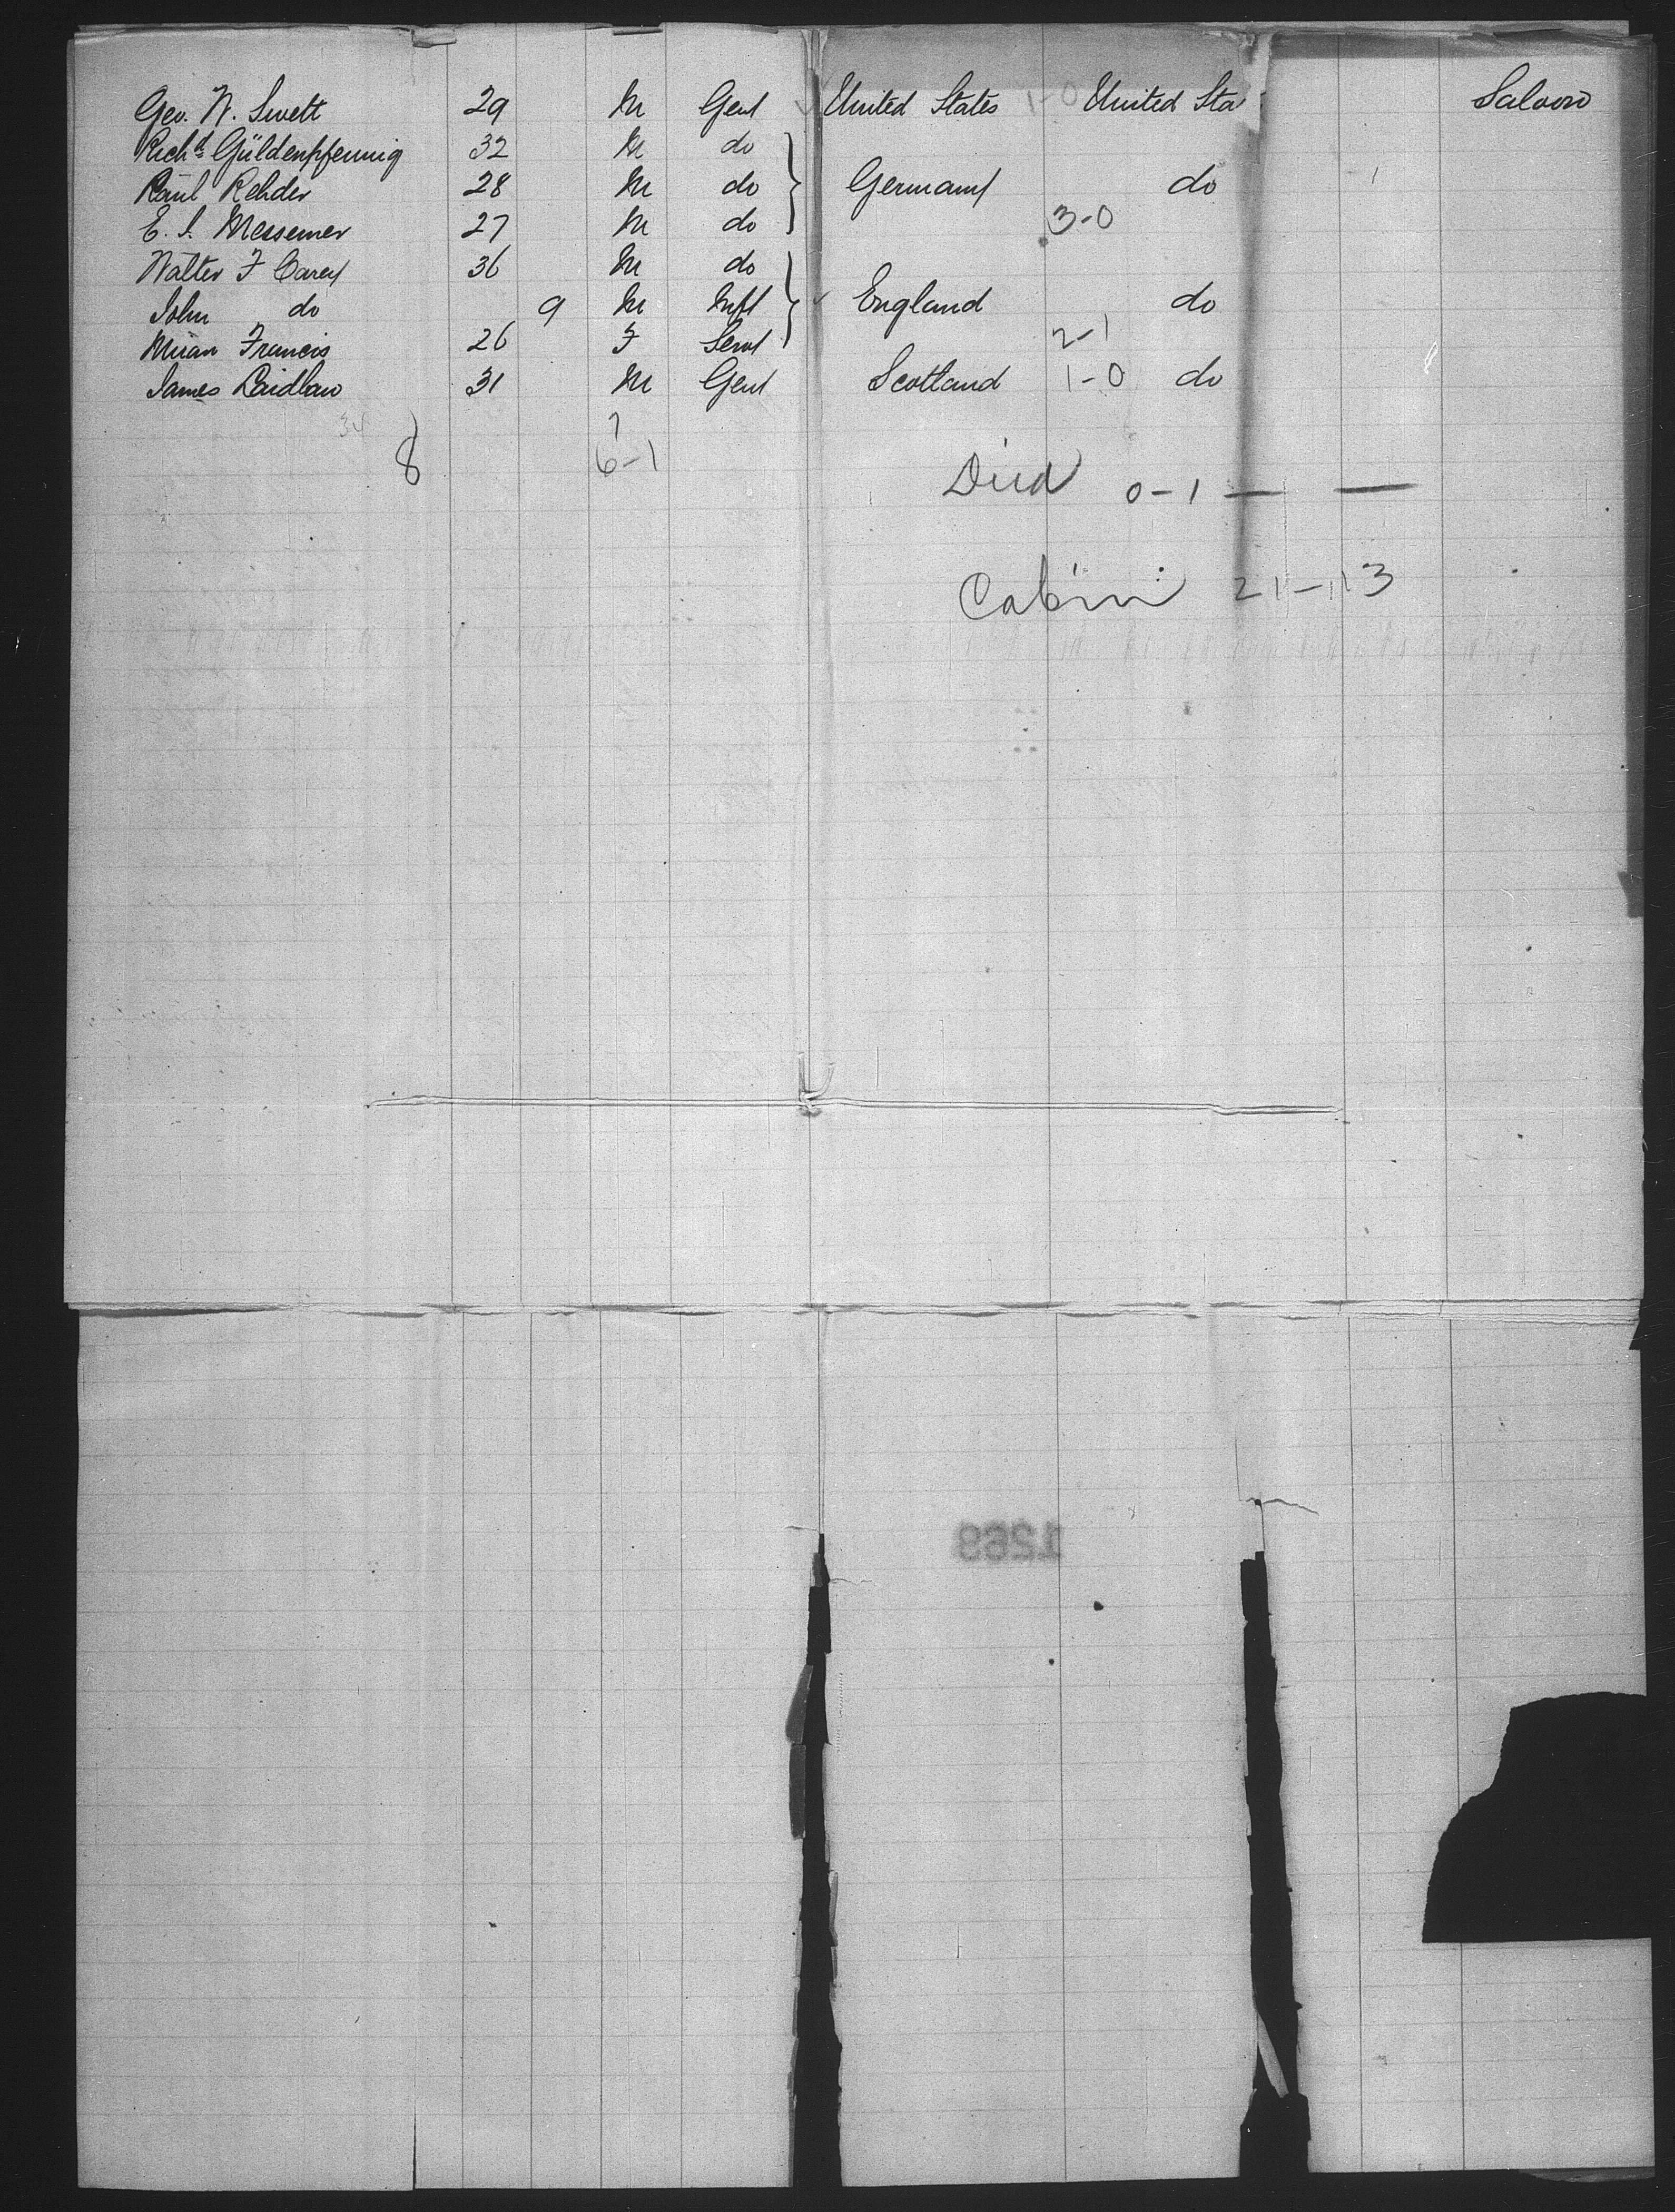 Geo. W. Swett 29 M Gent United States 1-0 United Sta Saloon
Richd Güldenpfennig 32 M do
Paul Rehder 28 M do Germany do
E. S. Messemer 27 M do 3-0
Walter F Carey 36 M do
John do 9 M Inft England do
Miran Francis 26 F Servt 2-1
James Laidlaw 31 M Gent Scotland 1-0 do
34
8 7
6-1
Died 0-1 — —
Cabin 21-13
1269